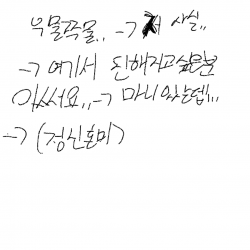 우물쭈물,, → 저 사실,,
→ 여기서 친해지고싶은분
있써요,, → 마니있는뎁,,
→ (정신혼미)